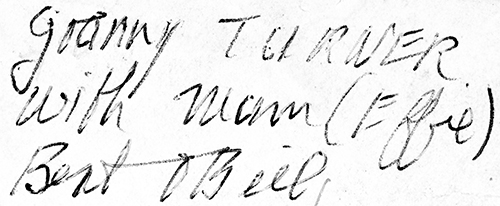 granny TURNER
with mam (Effie)
Bert & Bill,